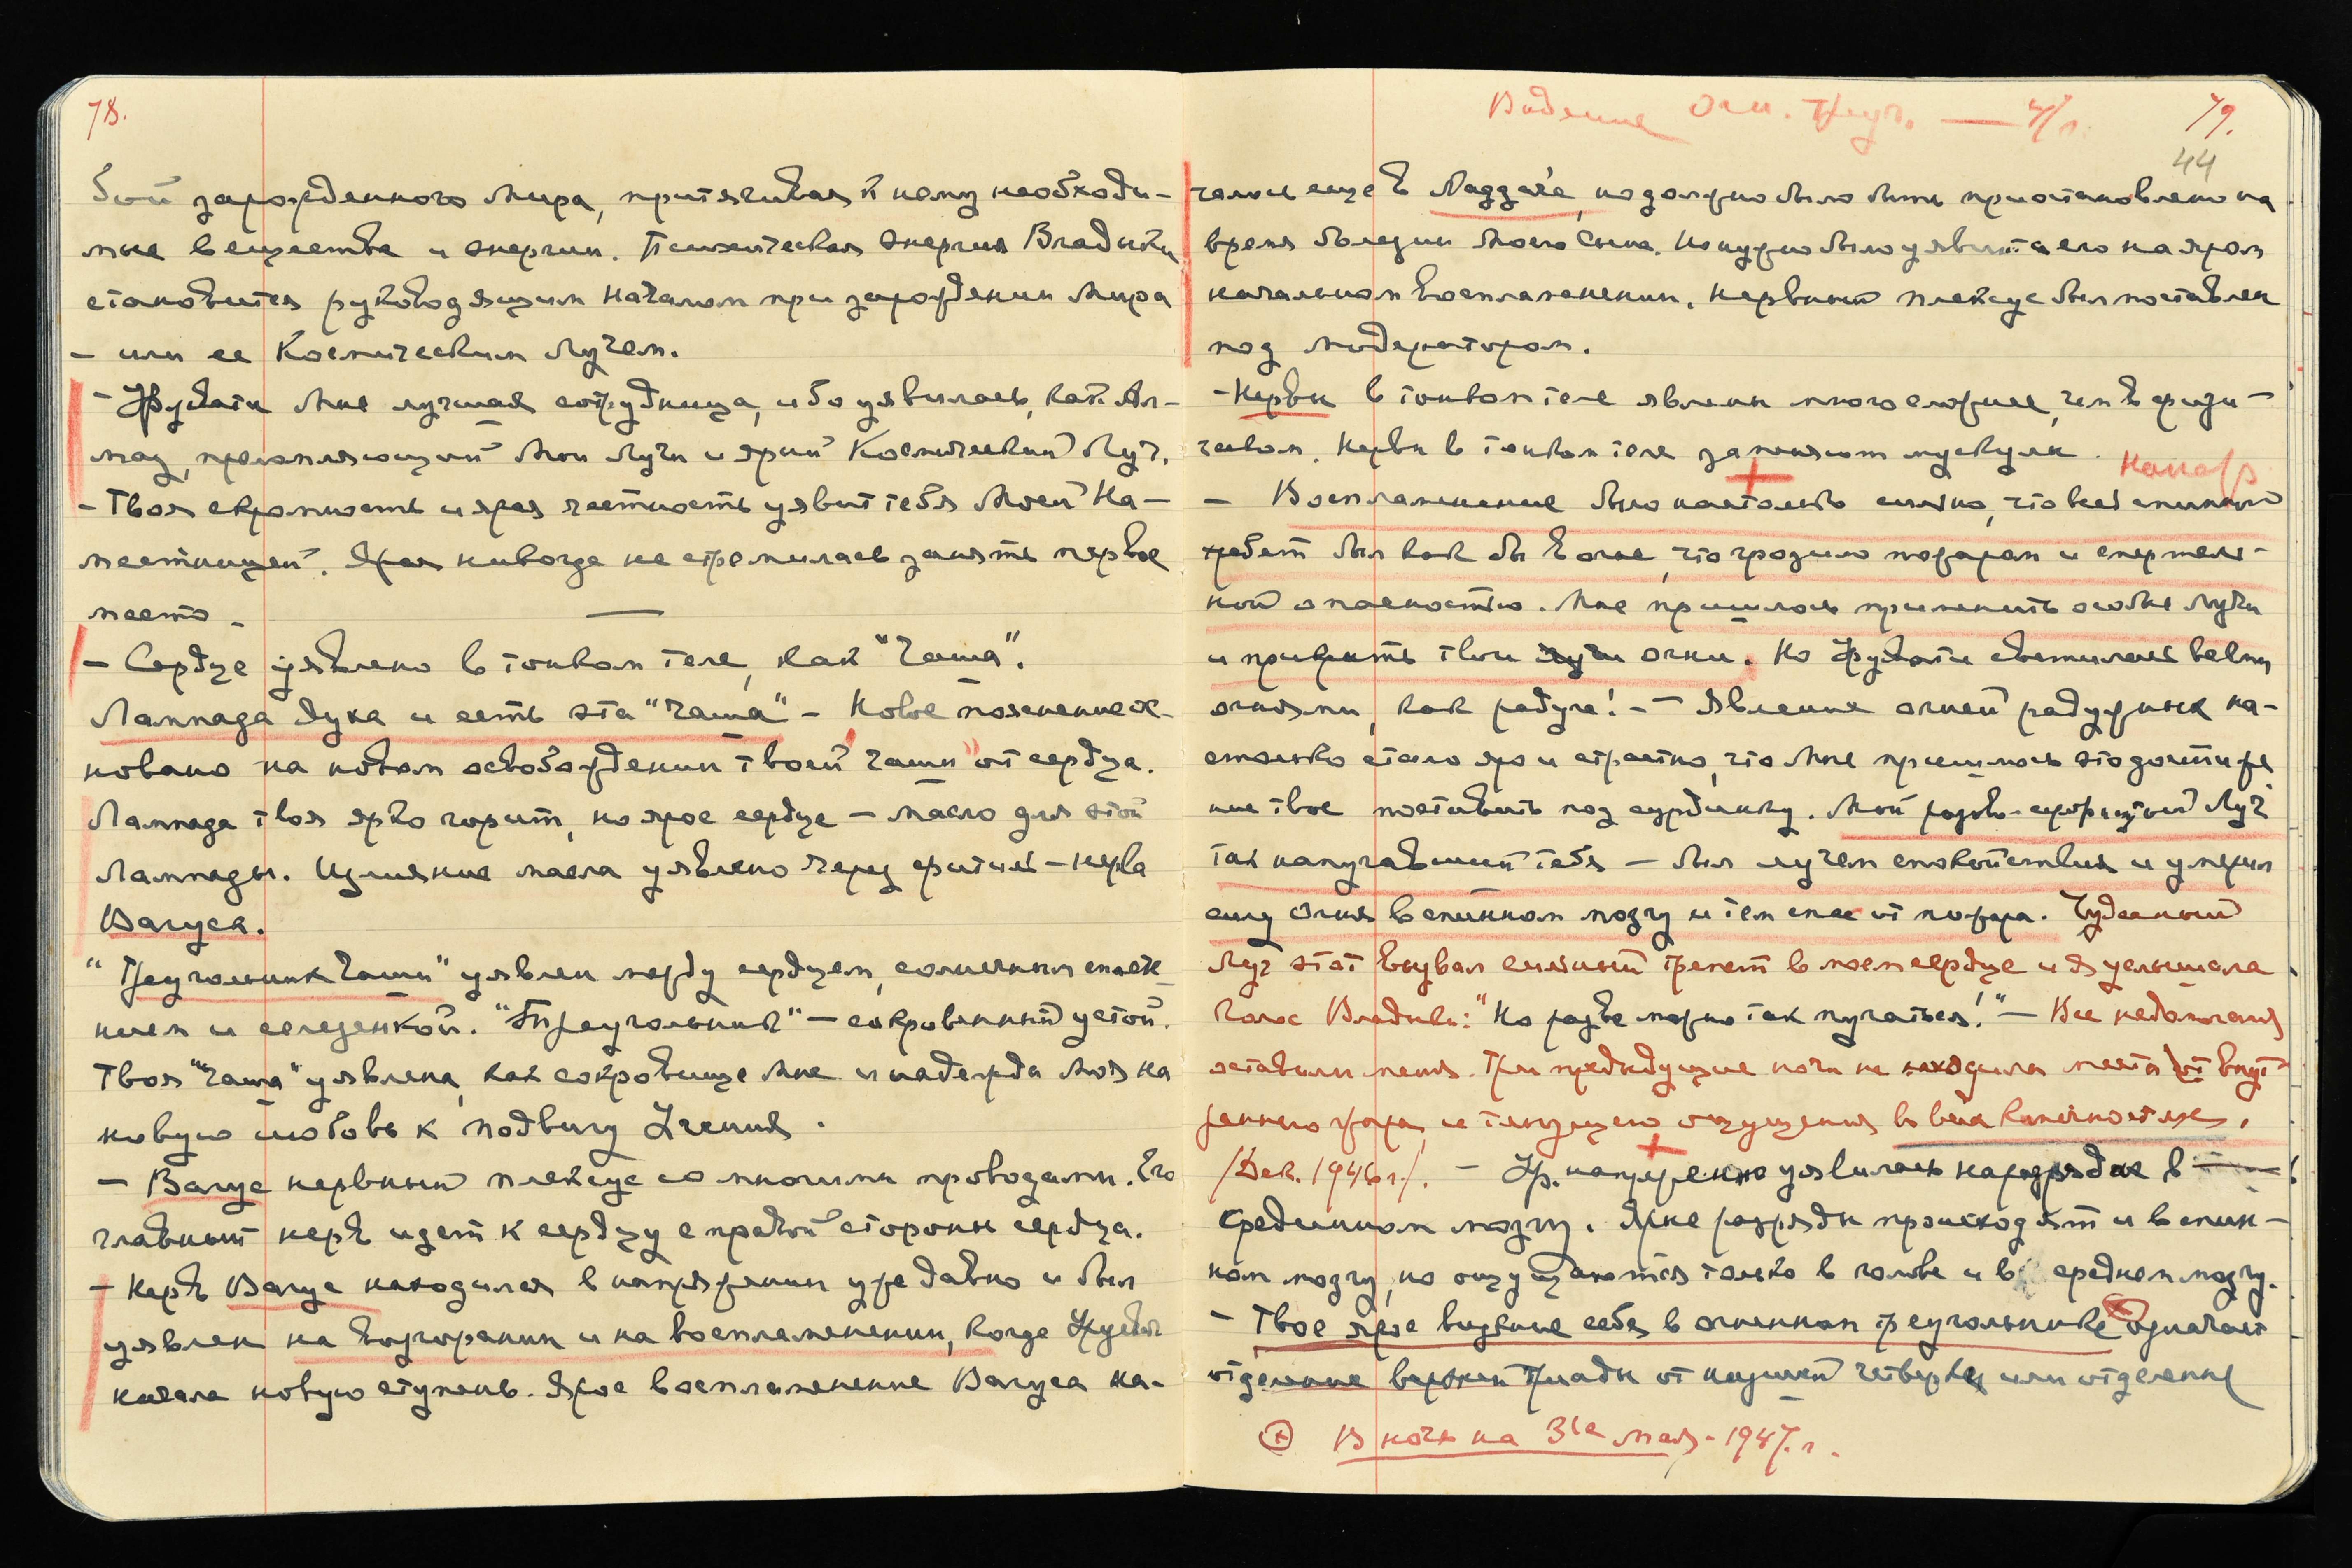 78.
бой зарожденного Мира, притягивая к нему необходи-
мые вещества и энергии. Психическая энергия Владыки
становится руководящим началом при зарождении Мира
– или ее Космическим Лучем.
– Урусвати Мне лучшая сотрудница, ибо уявилась, как Ал-
маз, преломляющий Мои Лучи и ярый Космический Луч.
– Твоя скромность и ярая честность уявит тебя Моей На-
местницей. Ярая никогда не стремилась занять первое
место –
– Сердце уявлено в тонком теле, как "Чаша".
Лампада духа и есть эта "Чаша" – Новое пояснение ос-
новано на новом освобождении твоей "чаши" от сердца.
Лампада твоя ярко горит, но ярое сердце – масло для этой
Лампады. Излияние масла уявлено через фитиль – нерва
Вагуса.
"Треугольник Чаши" уявлен между сердцем, солнечным сплет-
нием и селезенкой. "Треугольник" – сокровенный устой.
Твоя "Чаша" уявлена, как сокровище Мне и надежда Моя на
новую любовь к подвигу Учения.
– Вагус нервный плексус со многими проводами. Его
главный нерв идет к сердцу с правой стороны сердца.
– Нерв Вагус находился в напряжении уже давно и был
уявлен на возгорании и на воспламенении, когда Урусвати
начала новую ступень. Ярое воспламенение Вагуса на-
Видение Огн. Треуг. — 47 г.
79.
44
чалось еще в Наггаре, но должно было быть приостановлено на
время болезни Моего Сына. Но нужно было уявить его на яром
начальном воспламенении. Нервный плексус был поставлен
под модератором.
– Нервы в тонком теле явлены много сложнее, чем в физи-
ческом. Нервы в тонком теле заменяют мускулы.
– Воспламенение было настолько сильно, что весь спинной
хребет был как бы в огне, что грозило пожаром и смертель-
ной опасностью. Мне пришлось применить особые Лучи
и прикрыть твои огни. Но Урусвати светилась всеми
огнями, как радуга! – – Явление огней радужных на-
столько стало яро и страстно, что Мне пришлось это достиже
ние твое поставить под сурдинку. Мой розово-серебристый Луч
так напугавший тебя – был лучем спокойствия и умерил
силу Огня в спинном мозгу и тем спас от пожара. Чудесный
Луч этот вызвал сильный трепет в моем сердце и я услышала
Голос Владыки: "Но разве можно так пугаться!" – Все недомогания
оставили меня. Три предыдущие ночи не находила места от внут-
реннего жара и тянущего ощущения во всех конечностях.
/Дек. 1946 г./. – Ур. напряженно уявилась на разрядке в
срединном мозгу. Ярые разряды происходят и в спин-
ном мозгу, но ощущаются только в голове и в среднем мозгу.
– Твое ярое видение себя в огненном треугольнике означает
отделение верхней Триады от низшей четверки или отделение
⊗ В ночь на 3ье мая – 1947 г.